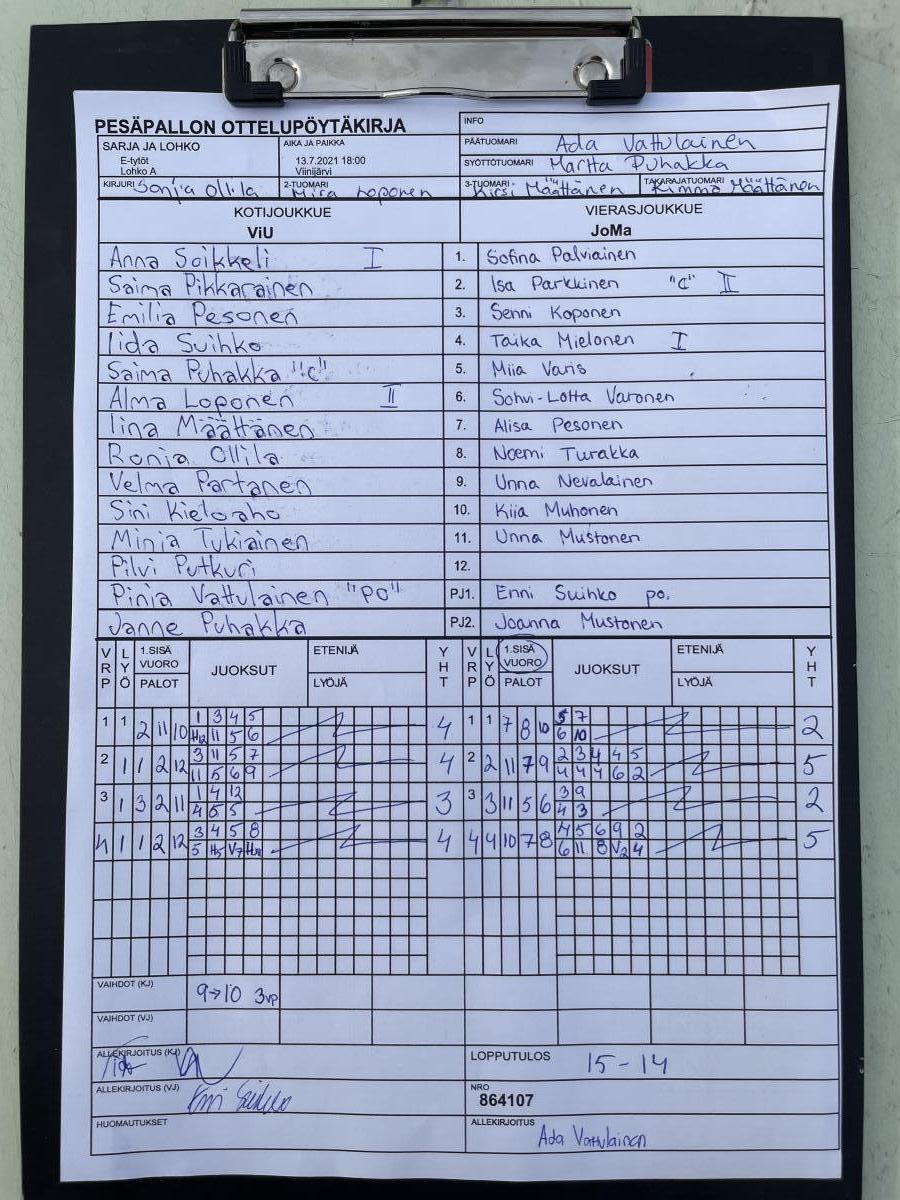 PESÄPALLON OTTELUPÖYTÄKIRJA
INFO
SARJA JA LOHKO
E-tytöt
Lohko A
AIKA JA PAIKKA
13.7.2021 18:00
Viinijärvi
PÄÄTUOMARI Ada Vattulainen
SYÖTTÖTUOMARI Martta Puhakka
KIRJURI Sonja Ollila 2-TUOMARI Mira Loponen 3-TUOMARI Kirsi Määttänen TAKARAJATUOMARI Kimmo Määttänen
KOTIJOUKKUE VIERASJOUKKUE
ViU JoMa
Anna Soikkeli I 1. Sofina Palviainen
Saima Pikkarainen 2. Isa Parkkinen "C" II
Emilia Pesonen 3. Senni Koponen
Iida Suihko 4. Taika Mielonen I
Saima Puhakka "C" 5. Miia Varis
Alma Loponen II 6. Sohvi-Lotta Varonen
Iina Määttänen 7. Alisa Pesonen
Ronja Ollila 8. Noemi Turakka
Velma Partanen 9. Unna Nevalainen
Sini Kieloaho 10. Kiia Muhonen
Minja Tukiainen 11. Unna Mustonen
Pilvi Putkuri 12.
Pinja Vattulainen "PO" PJ1. Enni Suihko po.
Janne Puhakka PJ2. Joanna Mustonen
VRP LYÖ 1.SISÄ VUORO PALOT JUOKSUT ETENIJÄ LYÖJÄ YHT VRP LYÖ 1.SISÄ VUORO PALOT JUOKSUT ETENIJÄ LYÖJÄ YHT
1 1 2 11 10 1 3 4 5 4 1 1 7 8 10 5 7 2
11 5 6 6 10
2 1 1 2 12 3 11 5 7 4 2 2 11 7 9 2 3 4 4 5 5
11 5 6 9 4 4 4 6 2
3 1 3 2 11 1 4 12 3 3 3 11 5 6 3 9 2
4 5 5 4 3
4 1 1 2 12 3 4 5 8 4 4 9 10 7 8 4 5 6 9 2 5
5 H5 V7 6 11 8 V2 4
VAIHDOT (KJ) 9→10 3vp
VAIHDOT (VJ)
ALLEKIRJOITUS (KJ) LOPPUTULOS 15-14
ALLEKIRJOITUS (VJ) Enni Suihko NRO 864107
HUOMAUTUKSET ALLEKIRJOITUS Ada Vattulainen